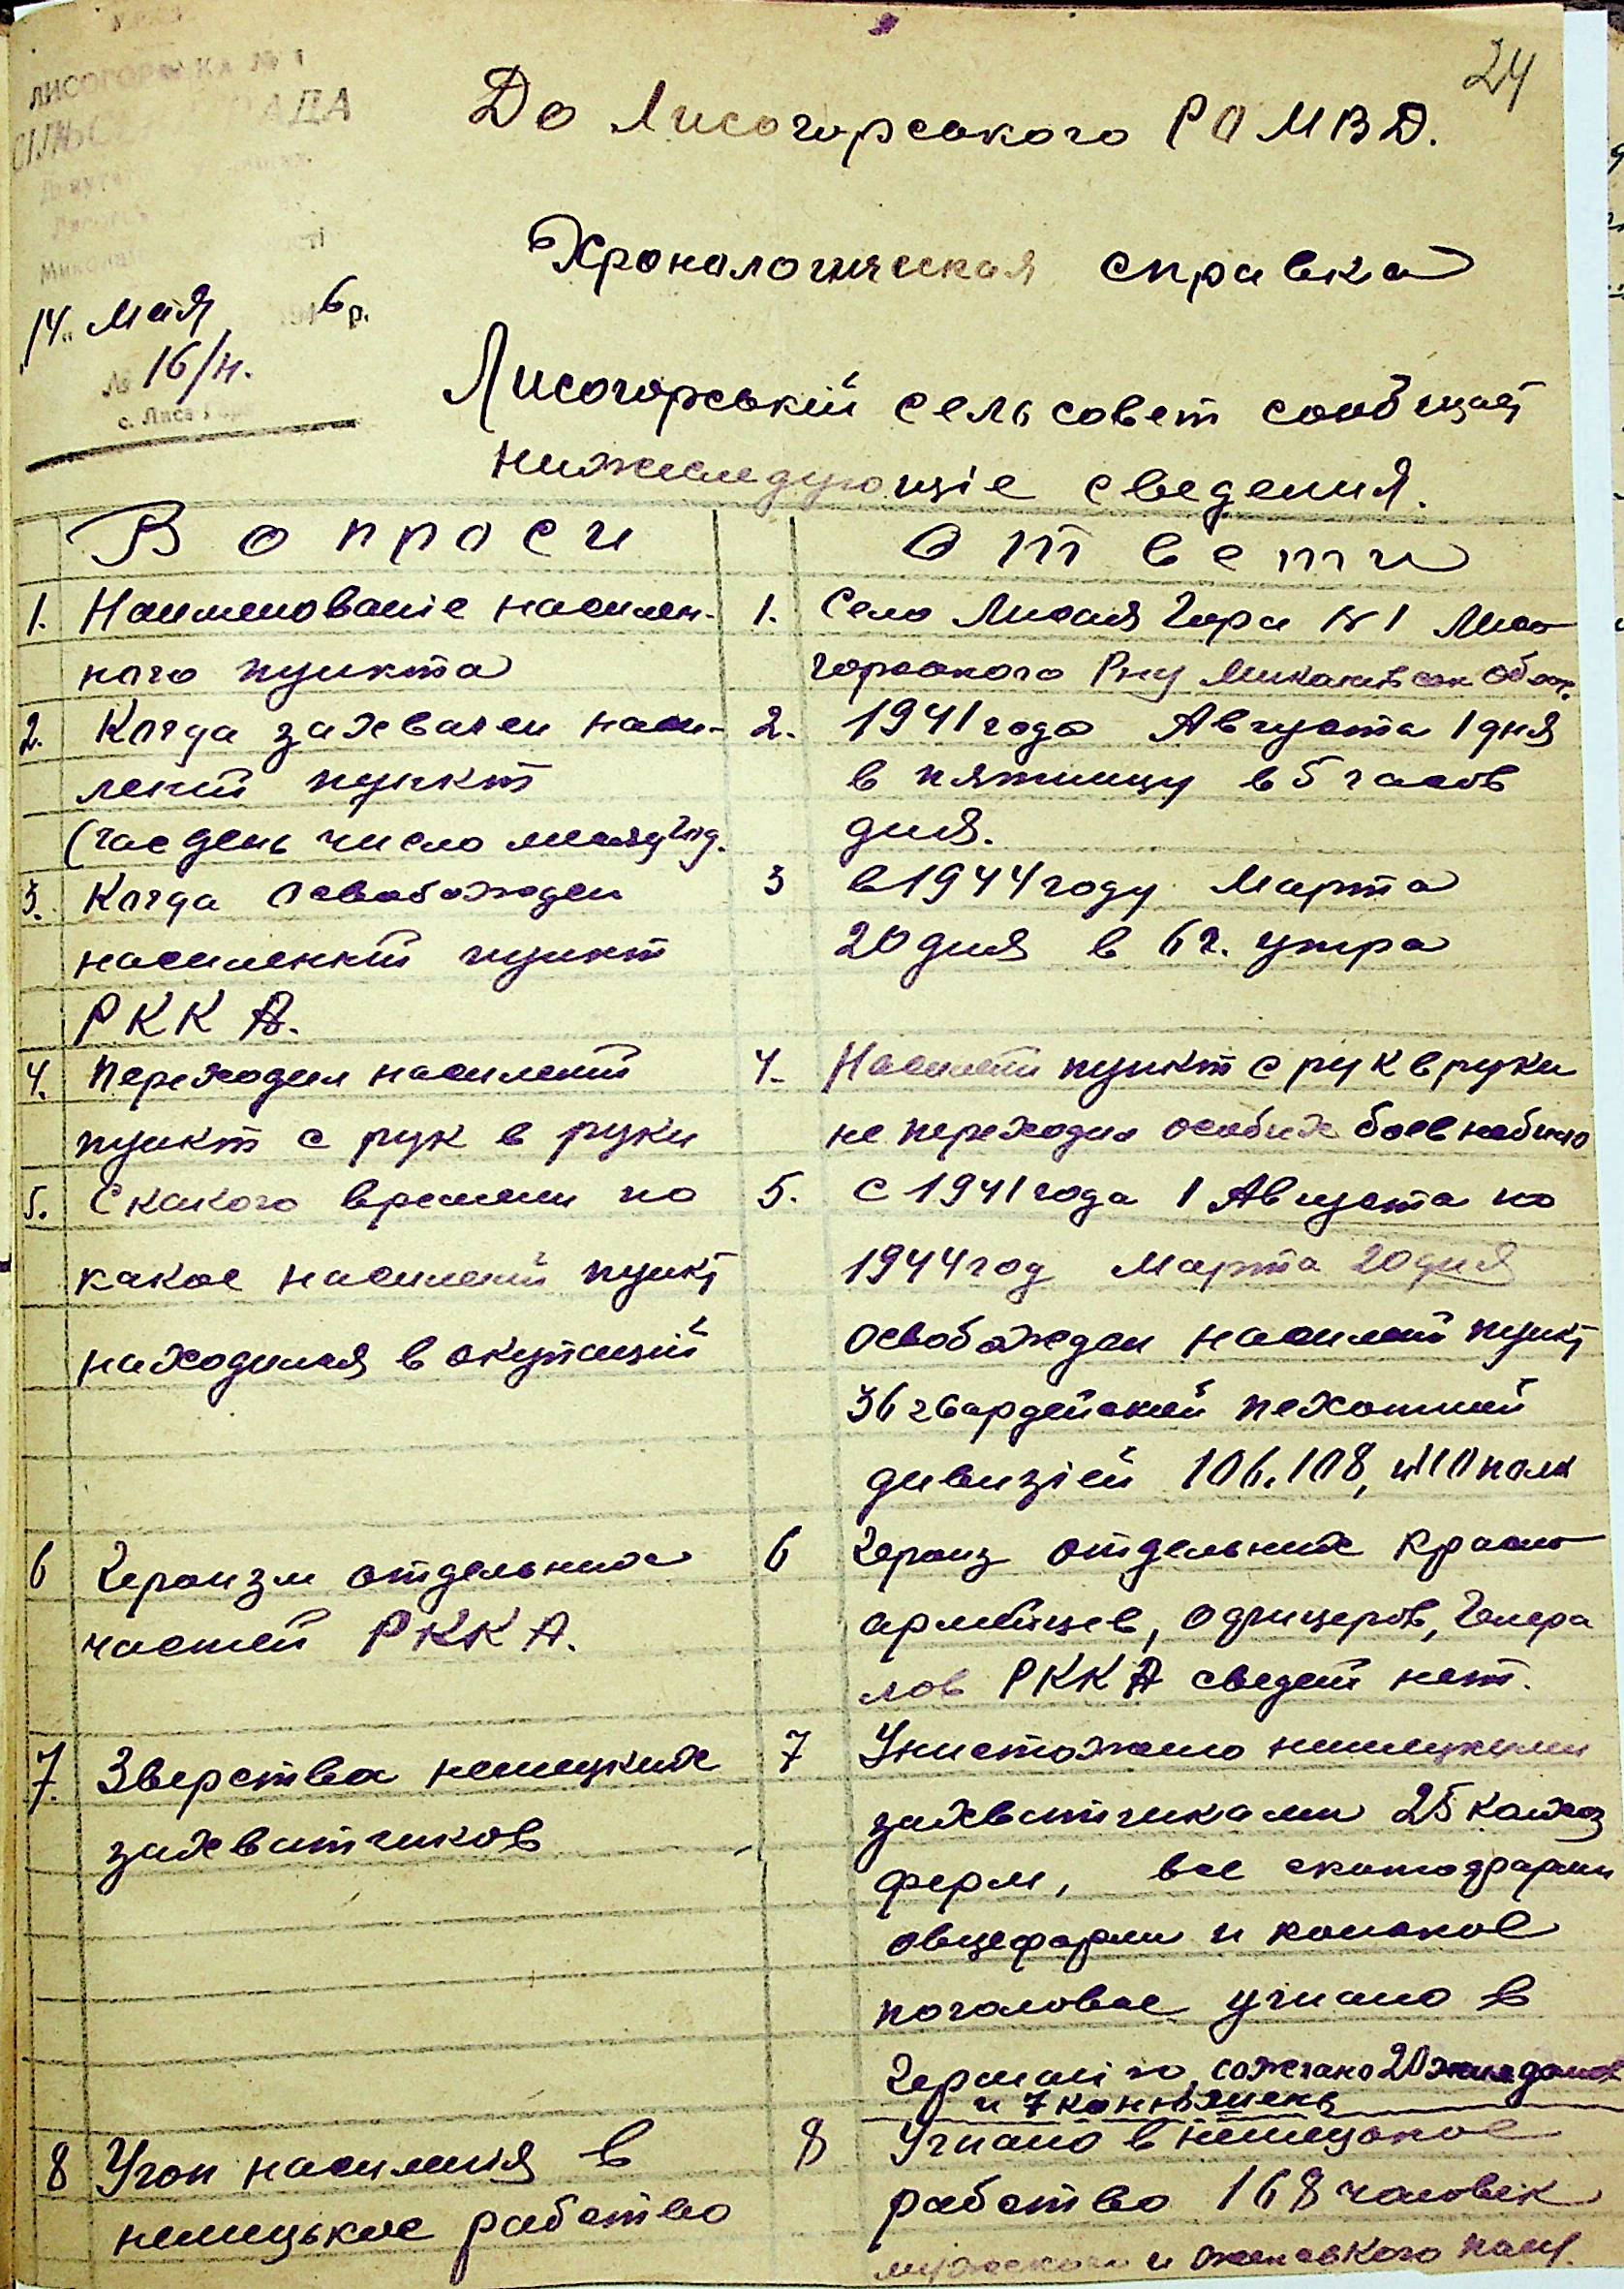 24
ЛИСОГОРСЬКА № 1
РАДА
14 мая 6 р.
№ 16/н.
с. Лиса
До Лисогорського РО МВД.
Хронологическая справка
Лисогорський сельсовет сообщает
нижеследующіе сведения.
Вопроси
Ответи
1. Наименованіе населен-
ного пункта
1. Село Лисая Гора №1 Лисо
горского Р-ну Миколаевской Област.
2. Когда захвачен насе-
лений пункт
(час день число месяц год.
2. 1941 года Августа 1 дня
в пятницу в 5 часов
дня.
3. Когда освобожден
населенний пункт
РККА.
3 в 1944 году Марта
20 дня в 6 ч. утра
4. Переходил населений
пункт с рук в руки
4. Населений пункт с рук в руки
не переходил особих боев не било
5. С какого времени по
какое населений пункт
находился в окупацій
5. С 1941 года 1 Августа по
1944 год Марта 20 дня
освобожден населений пункт
36 гвардейской пехотной
дивизіей 106, 108, и 110 полк
6 Героизм отдельних
частей РККА.
6 Героиз отдельних красно
армейцев, офицеров, Генера
лов РККА сведений нет.
7. Зверства немецких
захватчиков
7 Уничтожено немецкими
захватчиками 25 колхоз
ферм, все скотоферми
овцеферми и конское
поголовье угнано в
Германію, сожжено 20 домов
и 7 конюшень
8 Угон населенія в
немецькое рабство
8 Угнано в немецкое
рабство 168 человек
мужского и женского пола.